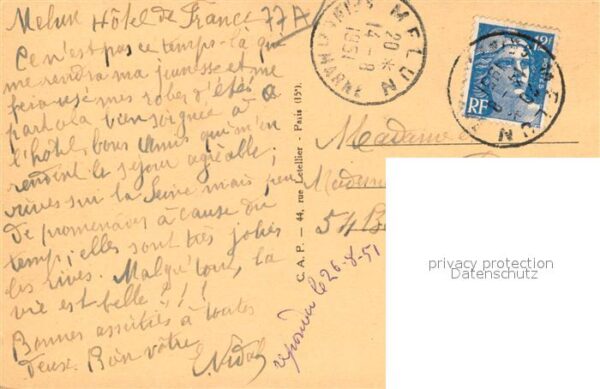 Melun Hôtel de France 77A
Ce n'est pas ce temps-là qui
me rendra ma jeunesse et me
fera usé mes robes d'étés à
part cela bien soignée à
l'hôtel, bons amis qui m'en
rendent le séjour agréable;
rives sur la Seine mais peu
de promenades à cause du
temps; elles sont très jolies
les rives. Malgré tout, la
vie est belle!!!
Bonnes amitiés à toutes
deux. Bien vôtre
E. Vidal
répondu le 26-8-51
C. A. P. — 44, rue Letellier - Paris (15e).
MELUN
20 *
14-8
1951
MARNE
12F
RF
MELUN
Madame
Madem
54 B
privacy protection
Datenschutz